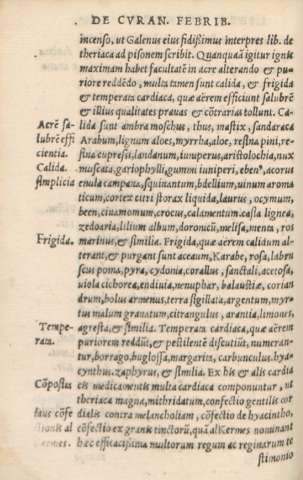 DE CVRAN. FEBRIB.
incenso, ut Galenus eius fidißimus interpres lib. de
theriaca ad pisonem scribit. Quanquã igitur ignis
maximam habet facultatẽ in aere alterando & pu-
riore reddẽdo, multa tamen sunt calida, & frigida
& temperata cardiaca, quæ aërem efficiunt salubrẽ
& illius qualitates prauas & cõtrarias tollunt. Ca-
Acrẽ sa-
lubrẽ effi
cientia.
Calida.
simplicia
lida sunt ambra moschus, thus, mastix, sandaraca
Arabum, lignum aloes, myrrha, aloe, resina pini, re-
sina cupreßi, landanum, iuniperus, aristolochia, nux
muscata, gariophylli, gummi iuniperi, eben°, acorus
enula campana, squinantum, bdellium, uinum aroma
ticum, cortex citri storax liquida, laurus, ocymum,
been, cinamomum, crocus, calamentum, casia lignea,
zedoaria, lilium album, doronici, melisa, menta, ros
Frigida.
marinus, & similia. Frigida, quæ aërem calidum al-
terant, & purgant sunt aceaum, Karabe, rosa, labru
scus poma, pyra, cydonia, corallus, sanctali, acetosa,
uiola cichorea, endiuia, nenuphar, balaustiæ, corian
drum, bolus armenus, terra sigillata, argentum, myr-
tus malum granatum, citrangulus, arantia, limones,
Tempe-
rata.
agresta, & similia. Temperata cardiaca, quæ aërem
puriorem reddũt, & pestilentẽ discutiũt, numeran-
tur, borrago, buglossa, margarita, carbunculus, hya-
cynthus, zaphyrus, & similia. Ex his & aliis cardia
Cõpositæ
cis medicamentis multa cardiaca componuntur, ut
theriaca magna, mithridatum, confectio gentilis cor
dialis contra melancholiam, cõfectio de hyacintho,
cõfectio ex granis tinctorũ, quã alKermes nominant
hæc efficacißima multorum regum ac reginarum te
stimonio